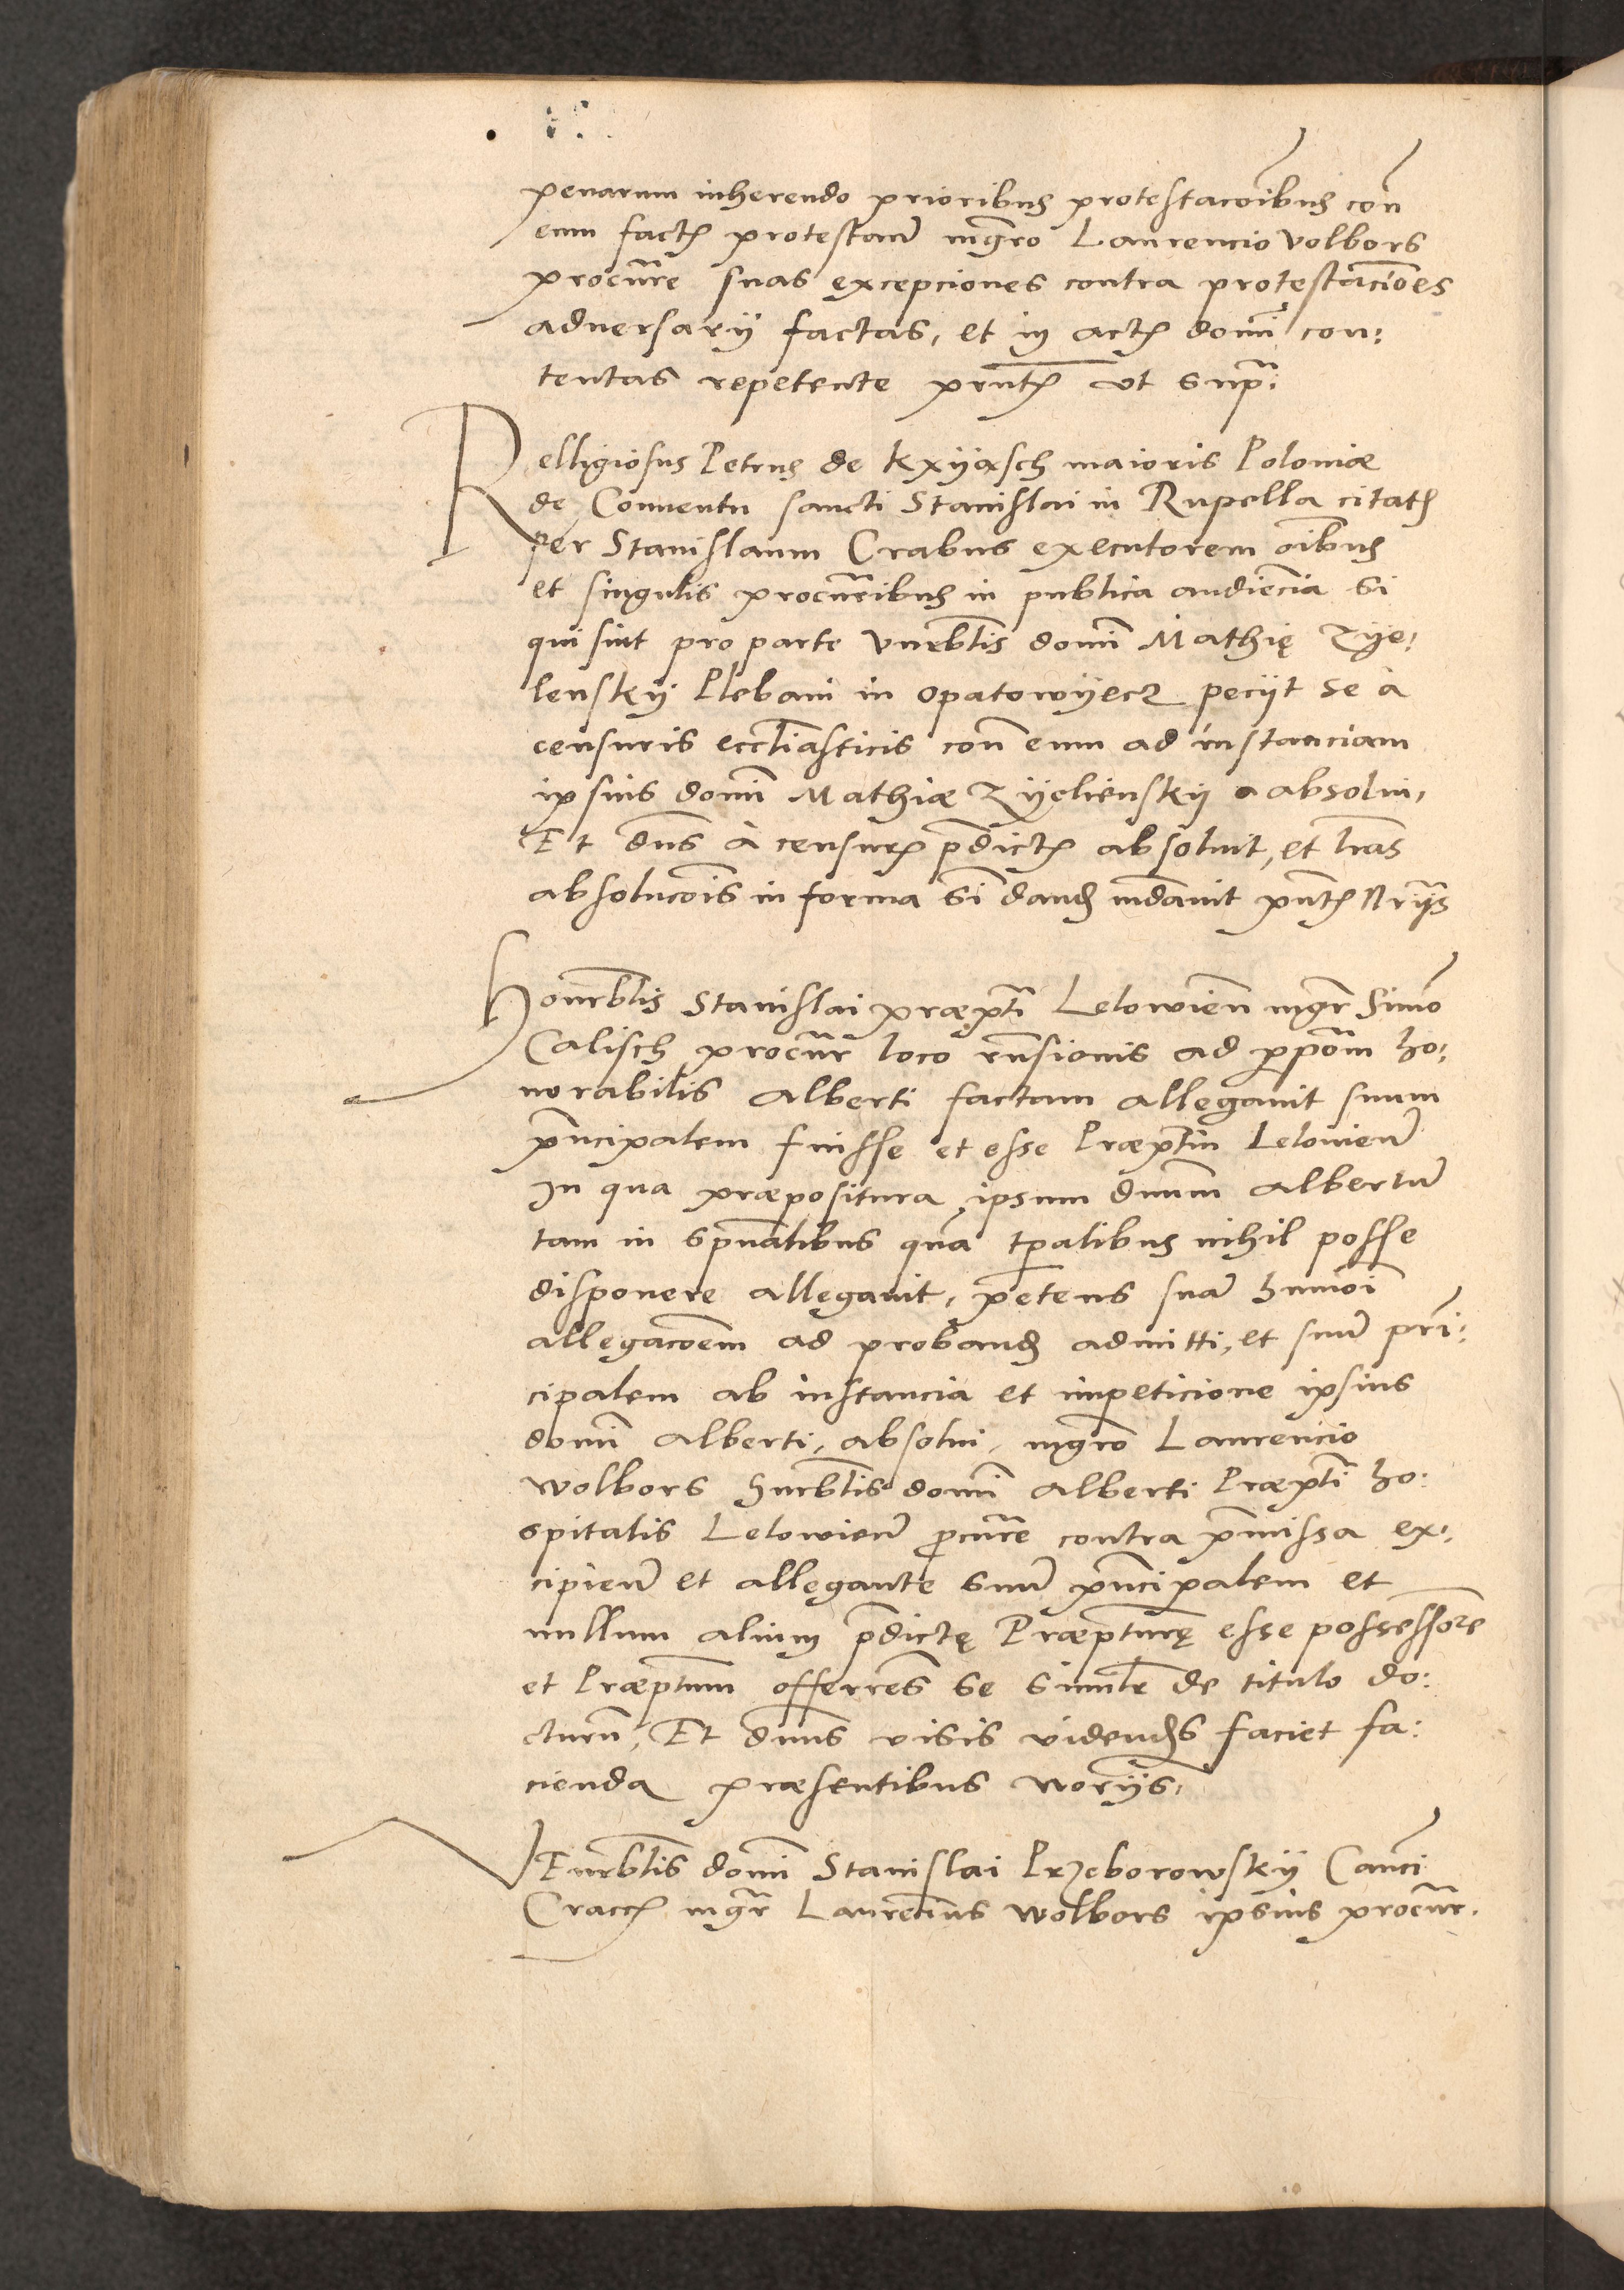 penarum inherendo prioribus protestacoibus con
eum factis protestan mgro Laurencio Volbors
procure suas excepciones contra protestaciones
adversarij factas, et in actis domi con:
tentas repetente pntis ut supra:
Relligiosus Petrus de Kxyąsch maioris Poloniæ
de Conuentu sancti Stanislai in Rupella citatus
per Stanislaum Crabus executorem oibus
et singulis procuribus in publica audiecia si
qui sint pro parte Vnrblis domi Mathię Zye:
lensky Plebani in Opatowyecz peciit se à
censuris ecclesiasticis con eum ad instanciam
ipsius domi Mathiæ Zyeliensky a absolui,
Et dns à censuris pdictis absoluit, et lras
absolucois in forma si dand mdauit pntis nrijs
Honrblis Stanislai præpti Lelowien mgr Simo
Calisch procur loco rnsionis ad ppom ho:
norabilis Alberti factam allegauit suum
pncipalem fuisse et esse Præptm Lelouien
In qua præpositura ipsum dnum Albertu
tam in spualibus qua tpalibus nihil posse
disponere allegauit, petens sua humoi
allegacoem ad proband admitti, et suu prin:
cipalem ab instancia et impeticione ipsius
domi Alberti, absolui, mgro Laurencio
Wolbors Hnrblis domi Alberti Præpti ho:
spitalis Lelowien pcure contra pmissa ex:
cipien et allegante suu pncipalem et
nullum alium pdictę Præpturę esse possessore
et Præptum offerens se similr de titulo do:
cturu, Et dnus visis videndis faciet fa:
cienda præsentibus noriis.
Venrblis domi Stanislai Przeborowsky Canci
Cracc mgr Laurecius Wolbors ipsius procur.